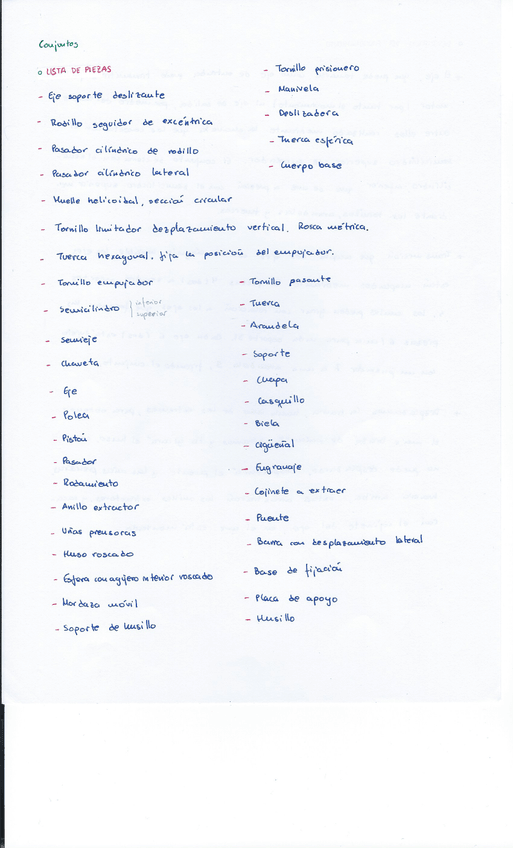 Conjuntos
o LISTA DE PIEZAS
- Eje soporte deslizante
- Rodillo seguidor de excéntrica
- Pasador cilíndrico de rodillo
- Pasador cilíndrico lateral
- Tornillo prisionero
- Manivela
- Deslizadora
- Tuerca esférica
- Cuerpo base
- Muelle helicoidal, sección circular
- Tornillo limitador desplazamiento vertical. Rosca métrica.
- Tuerca hexagonal. fija la posición del empujador.
- Tornillo empujador
- Semicilindro inferior
superior
- Semieje
- Chaveta
- Eje
- Polea
- Pistón
- Pasador
- Rodamiento
- Anillo extractor
- Uñas prensoras
- Huso roscado
- Esfera con agujero interior roscado
- Mordaza móvil
- Soporte de husillo
- Tornillo pasante
- Tuerca
- Arandela
- Soporte
- Chapa
- Casquillo
- Biela
- Cigüeñal
- Engranaje
- Cojinete a extraer
- Puente
- Barra con desplazamiento lateral
- Base de fijación
- Placa de apoyo
- Husillo